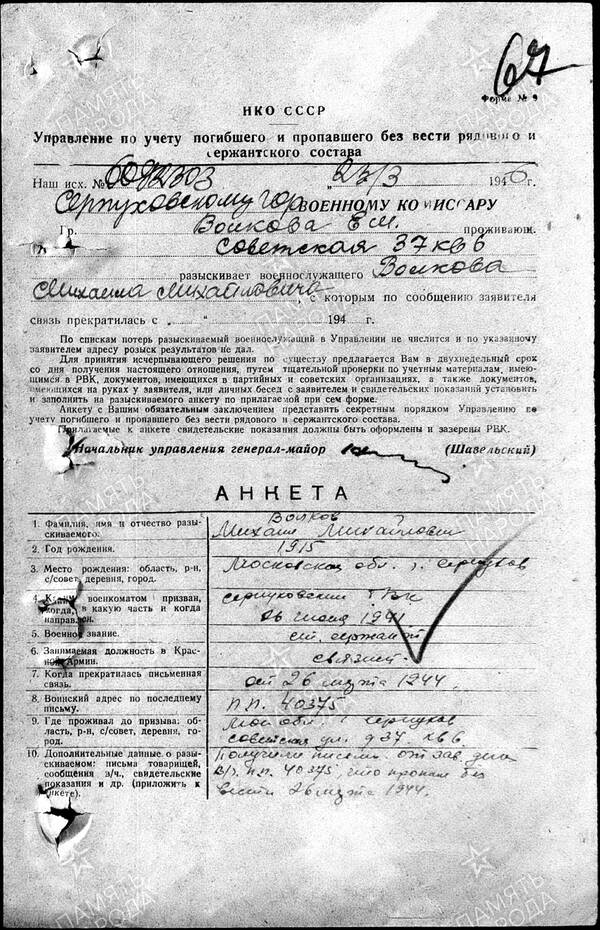 67
Форма № 9
НКО СССР
Управление по учету погибшего и пропавшего без вести рядового и
сержантского состава
Наш исх. № 6092303 „23/3 1946г.
Серпуховскому гор ВОЕННОМУ КОМИССАРУ
Гр. Волкова Е М. проживающ.
Советская 37 кв 6
разыскивает военнослужащего Волкова
Михаила Михайловича, с которым по сообщению заявителя
связь прекратилась с „ “ 194 г.
По спискам потерь разыскиваемый военнослужащий в Управлении не числится и по указанному
заявителем адресу розыск результатов не дал.
Для принятия исчерпывающего решения по существу предлагается Вам в двухнедельный срок
со дня получения настоящего отношения, путем тщательной проверки по учетным материалам, имею-
щимся в РВК, документов, имеющихся в партийных и советских организациях, а также документов,
имеющихся на руках у заявителя, или личных бесед с заявителем и свидетельских показаний установить
и заполнить на разыскиваемого анкету по прилагаемой при сем форме.
Анкету с Вашим обязательным заключением представить секретным порядком Управлению по
учету погибшего и пропавшего без вести рядового и сержантского состава.
Прилагаемые к анкете свидетельские показания должны быть оформлены и заверены РВК.
Начальник управления генерал-майор (Шавельский)
АНКЕТА
1. Фамилия, имя и отчество разы-
скиваемого.
Волков
Михаил Михайлович
2. Год рождения.
1915
3. Место рождения: область, р-н,
с/совет, деревня, город.
Московская обл. г. Серпухов
4. Каким военкоматом призван,
когда, в какую часть и когда
направлен.
Серпуховский ГВК
26 июня 1941
5. Военное звание.
ст. сержант
6. Занимаемая должность в Крас-
ной Армии.
связист.
7. Когда прекратилась письменная
связь.
от 26 марта 1944.
8. Воинский адрес по последнему
письму.
п.п. 40375
9. Где проживал до призыва: об-
ласть, р-н, с/совет, деревня, го-
род.
Мос обл. г Серпухов
советская ул. д 37 кв 6
10. Дополнительные данные о разы-
скиваемом: письма товарищей,
сообщения в/ч., свидетельские
показания и др. (приложить к
анкете).
Получили письмо от зав. дел
В/ч. п.п. 40375, что пропал без
вести 26 марта 1944.
ПАМЯТЬ
НАРОДА